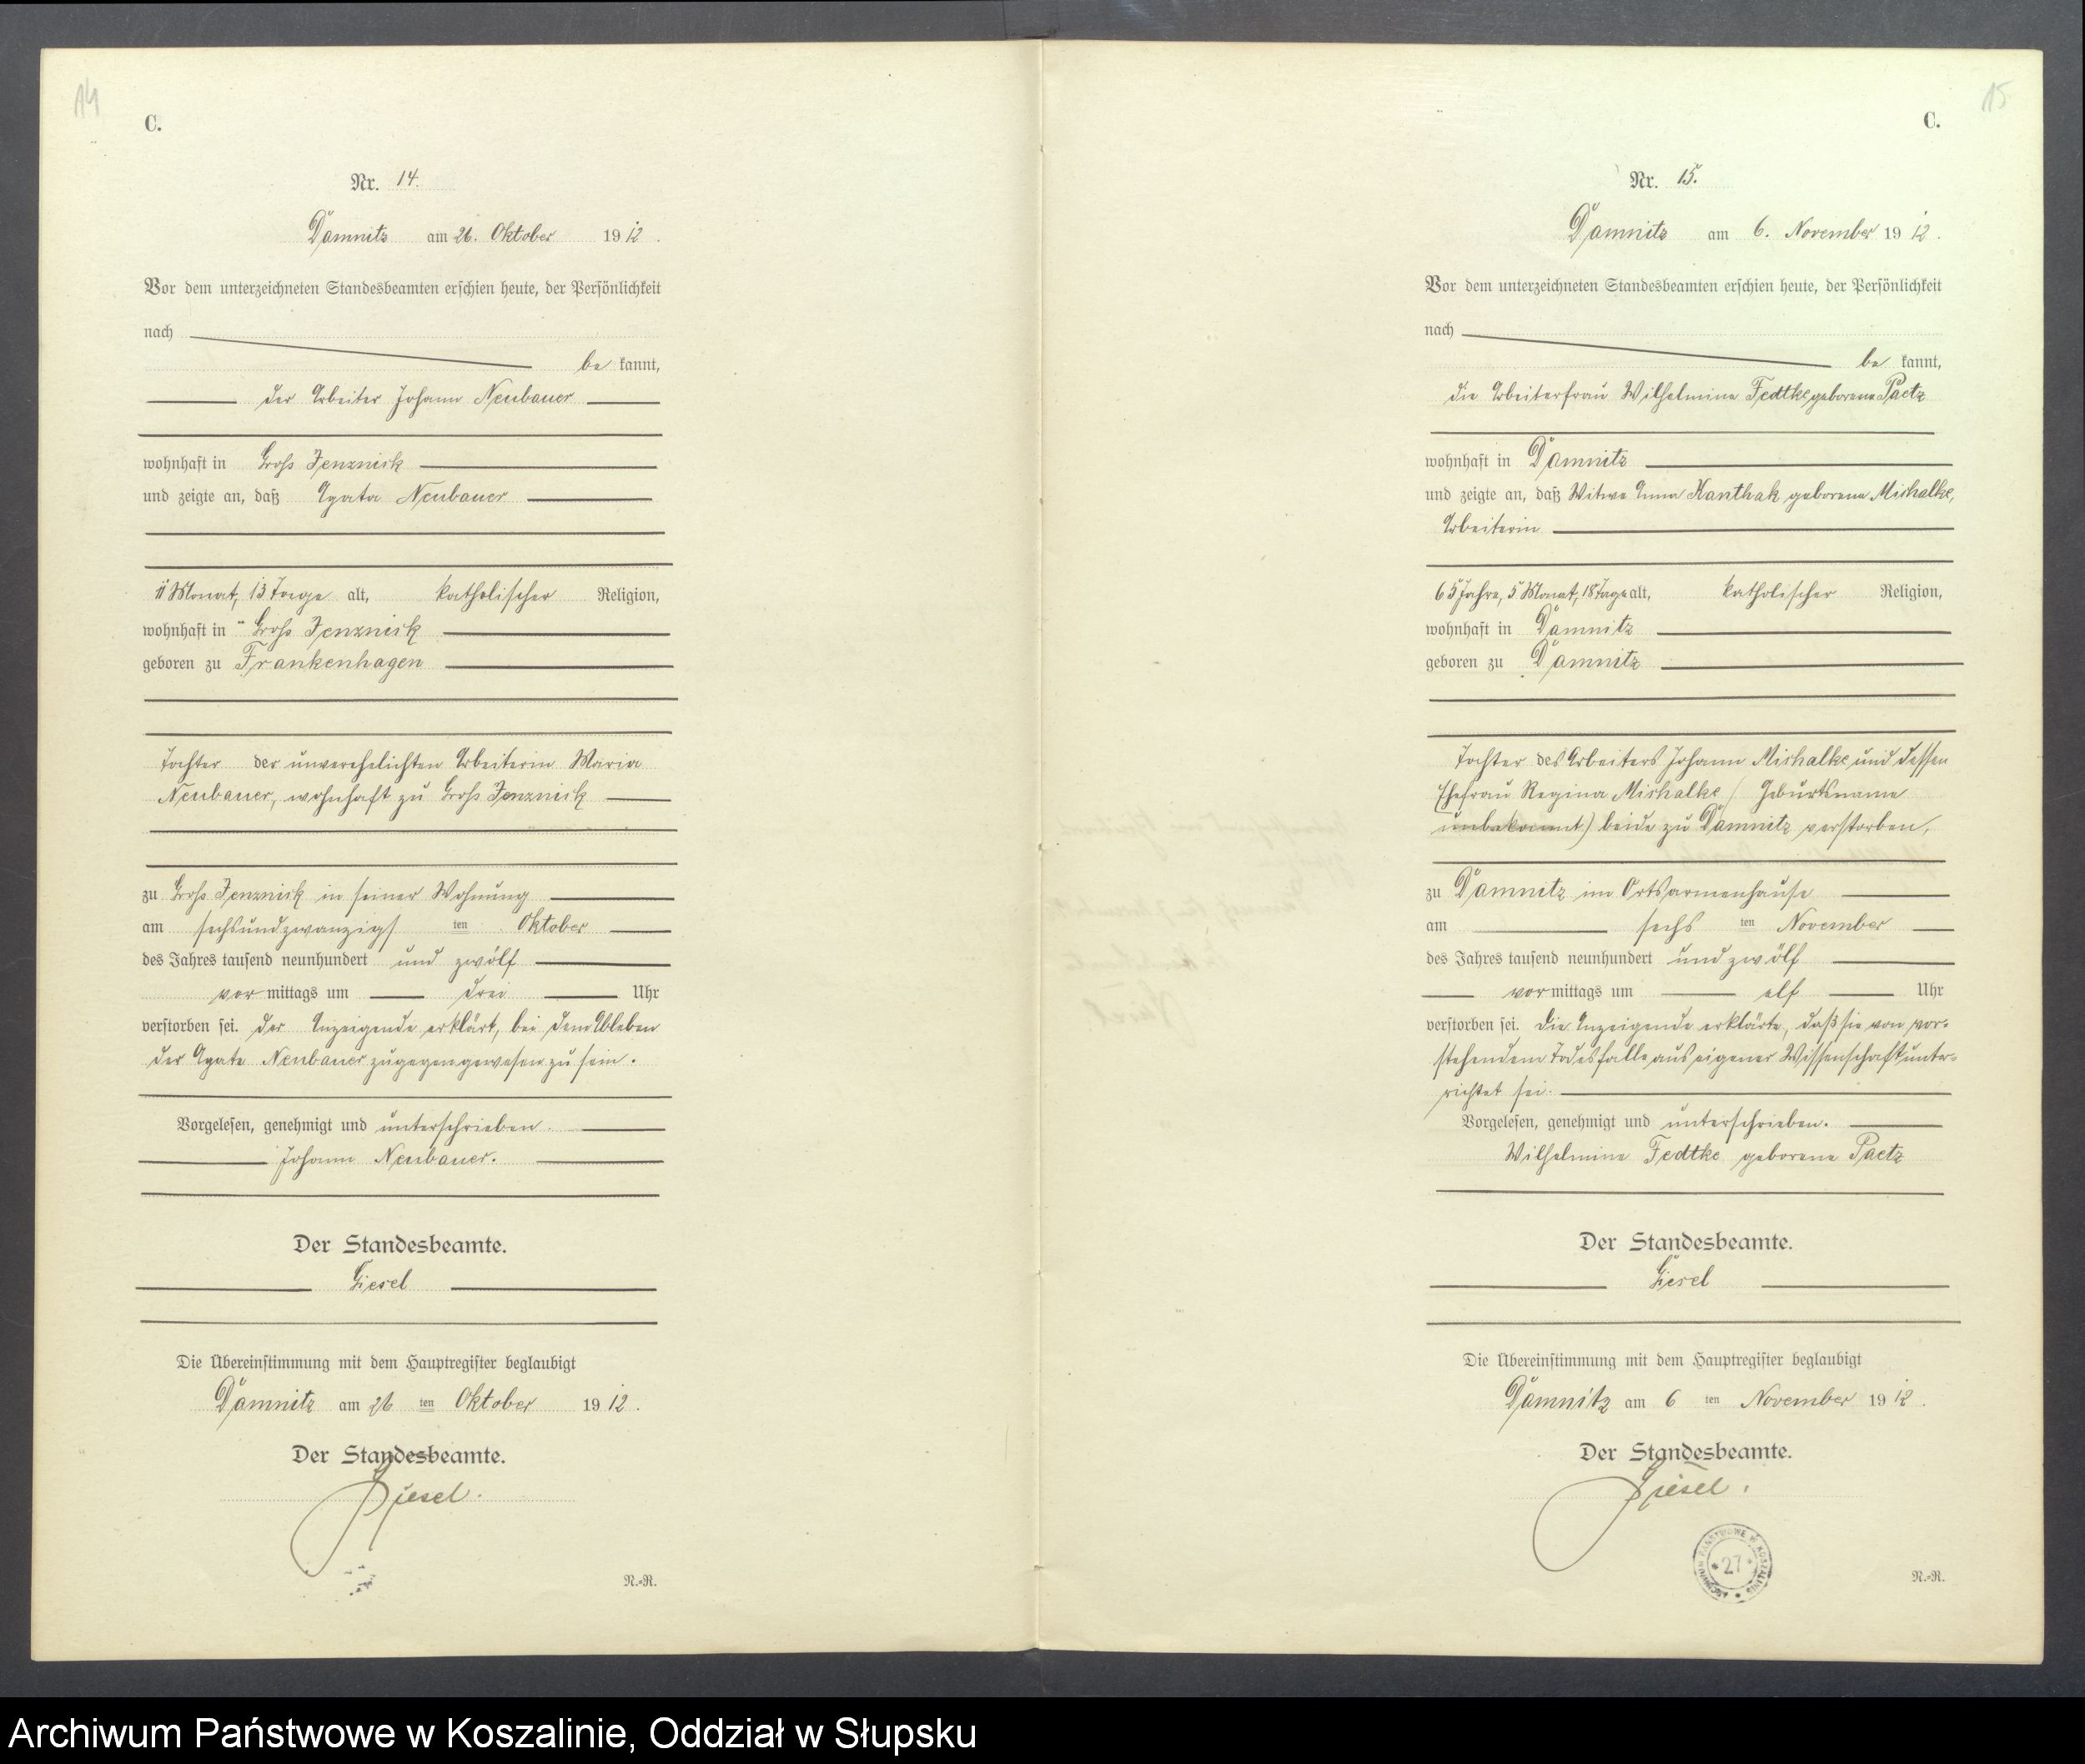 14
C.
Nr. 14.
Damnitz am 26. Oktober 1912.
Vor dem unterzeichneten Standesbeamten erschien heute, der Persönlichkeit
nach
be kannt,
der Arbeiter Johann Neubauer
wohnhaft in Groß Jenznick
und zeigte an, daß Agata Neubauer
11 Monat, 13 Tage alt, katholischer Religion,
wohnhaft in Groß Jenznick
geboren zu Frankenhagen
Tochter der unverehelichten Arbeiterin Maria
Neubauer, wohnhaft zu Groß Jenznick
zu Groß Jenznick in seiner Wohnung
am sechsundzwanzigs ten Oktober
des Jahres tausend neunhundert und zwölf
vor mittags um drei Uhr
verstorben sei. Der Anzeigende erklärt, bei dem Ableben
der Agata Neubauer zugegen gewesen zu sein.
Vorgelesen, genehmigt und unterschrieben.
Johann Neubauer.
Der Standesbeamte.
Giesel
Die Übereinstimmung mit dem Hauptregister beglaubigt
Damnitz am 26 ten Oktober 1912.
Der Standesbeamte.
Giesel.
N.-R.
15
C.
Nr. 15.
Damnitz am 6. November 1912.
Vor dem unterzeichneten Standesbeamten erschien heute, der Persönlichkeit
nach
be kannt,
die Arbeiterfrau Wilhelmine Fedtke geborene Paetz
wohnhaft in Damnitz
und zeigte an, daß Witwe Anna Kanthak geborene Mischalke,
Arbeiterin
65 Jahre, 5 Monat, 18 Tage alt, katholischer Religion,
wohnhaft in Damnitz
geboren zu Damnitz
Tochter des Arbeiters Johann Mischalke und dessen
Ehefrau Regina Mischalke (Geburtsname
unbekannt) beide zu Damnitz verstorben,
zu Damnitz im Ortsarmenhause
am sechs ten November
des Jahres tausend neunhundert und zwölf
vor mittags um elf Uhr
verstorben sei. Die Anzeigende erklärte, daß sie von vor-
stehendem Todesfalle aus eigener Wissenschaft unter-
richtet sei.
Vorgelesen, genehmigt und unterschrieben.
Wilhelmine Fedtke geborene Paetz
Der Standesbeamte.
Giesel
Die Übereinstimmung mit dem Hauptregister beglaubigt
Damnitz am 6 ten November 1912.
Der Standesbeamte.
Giesel.
ARCHIWUM PAŃSTWOWE W KOSZALINIE
* 27 *
N.-R.
Archiwum Państwowe w Koszalinie, Oddział w Słupsku